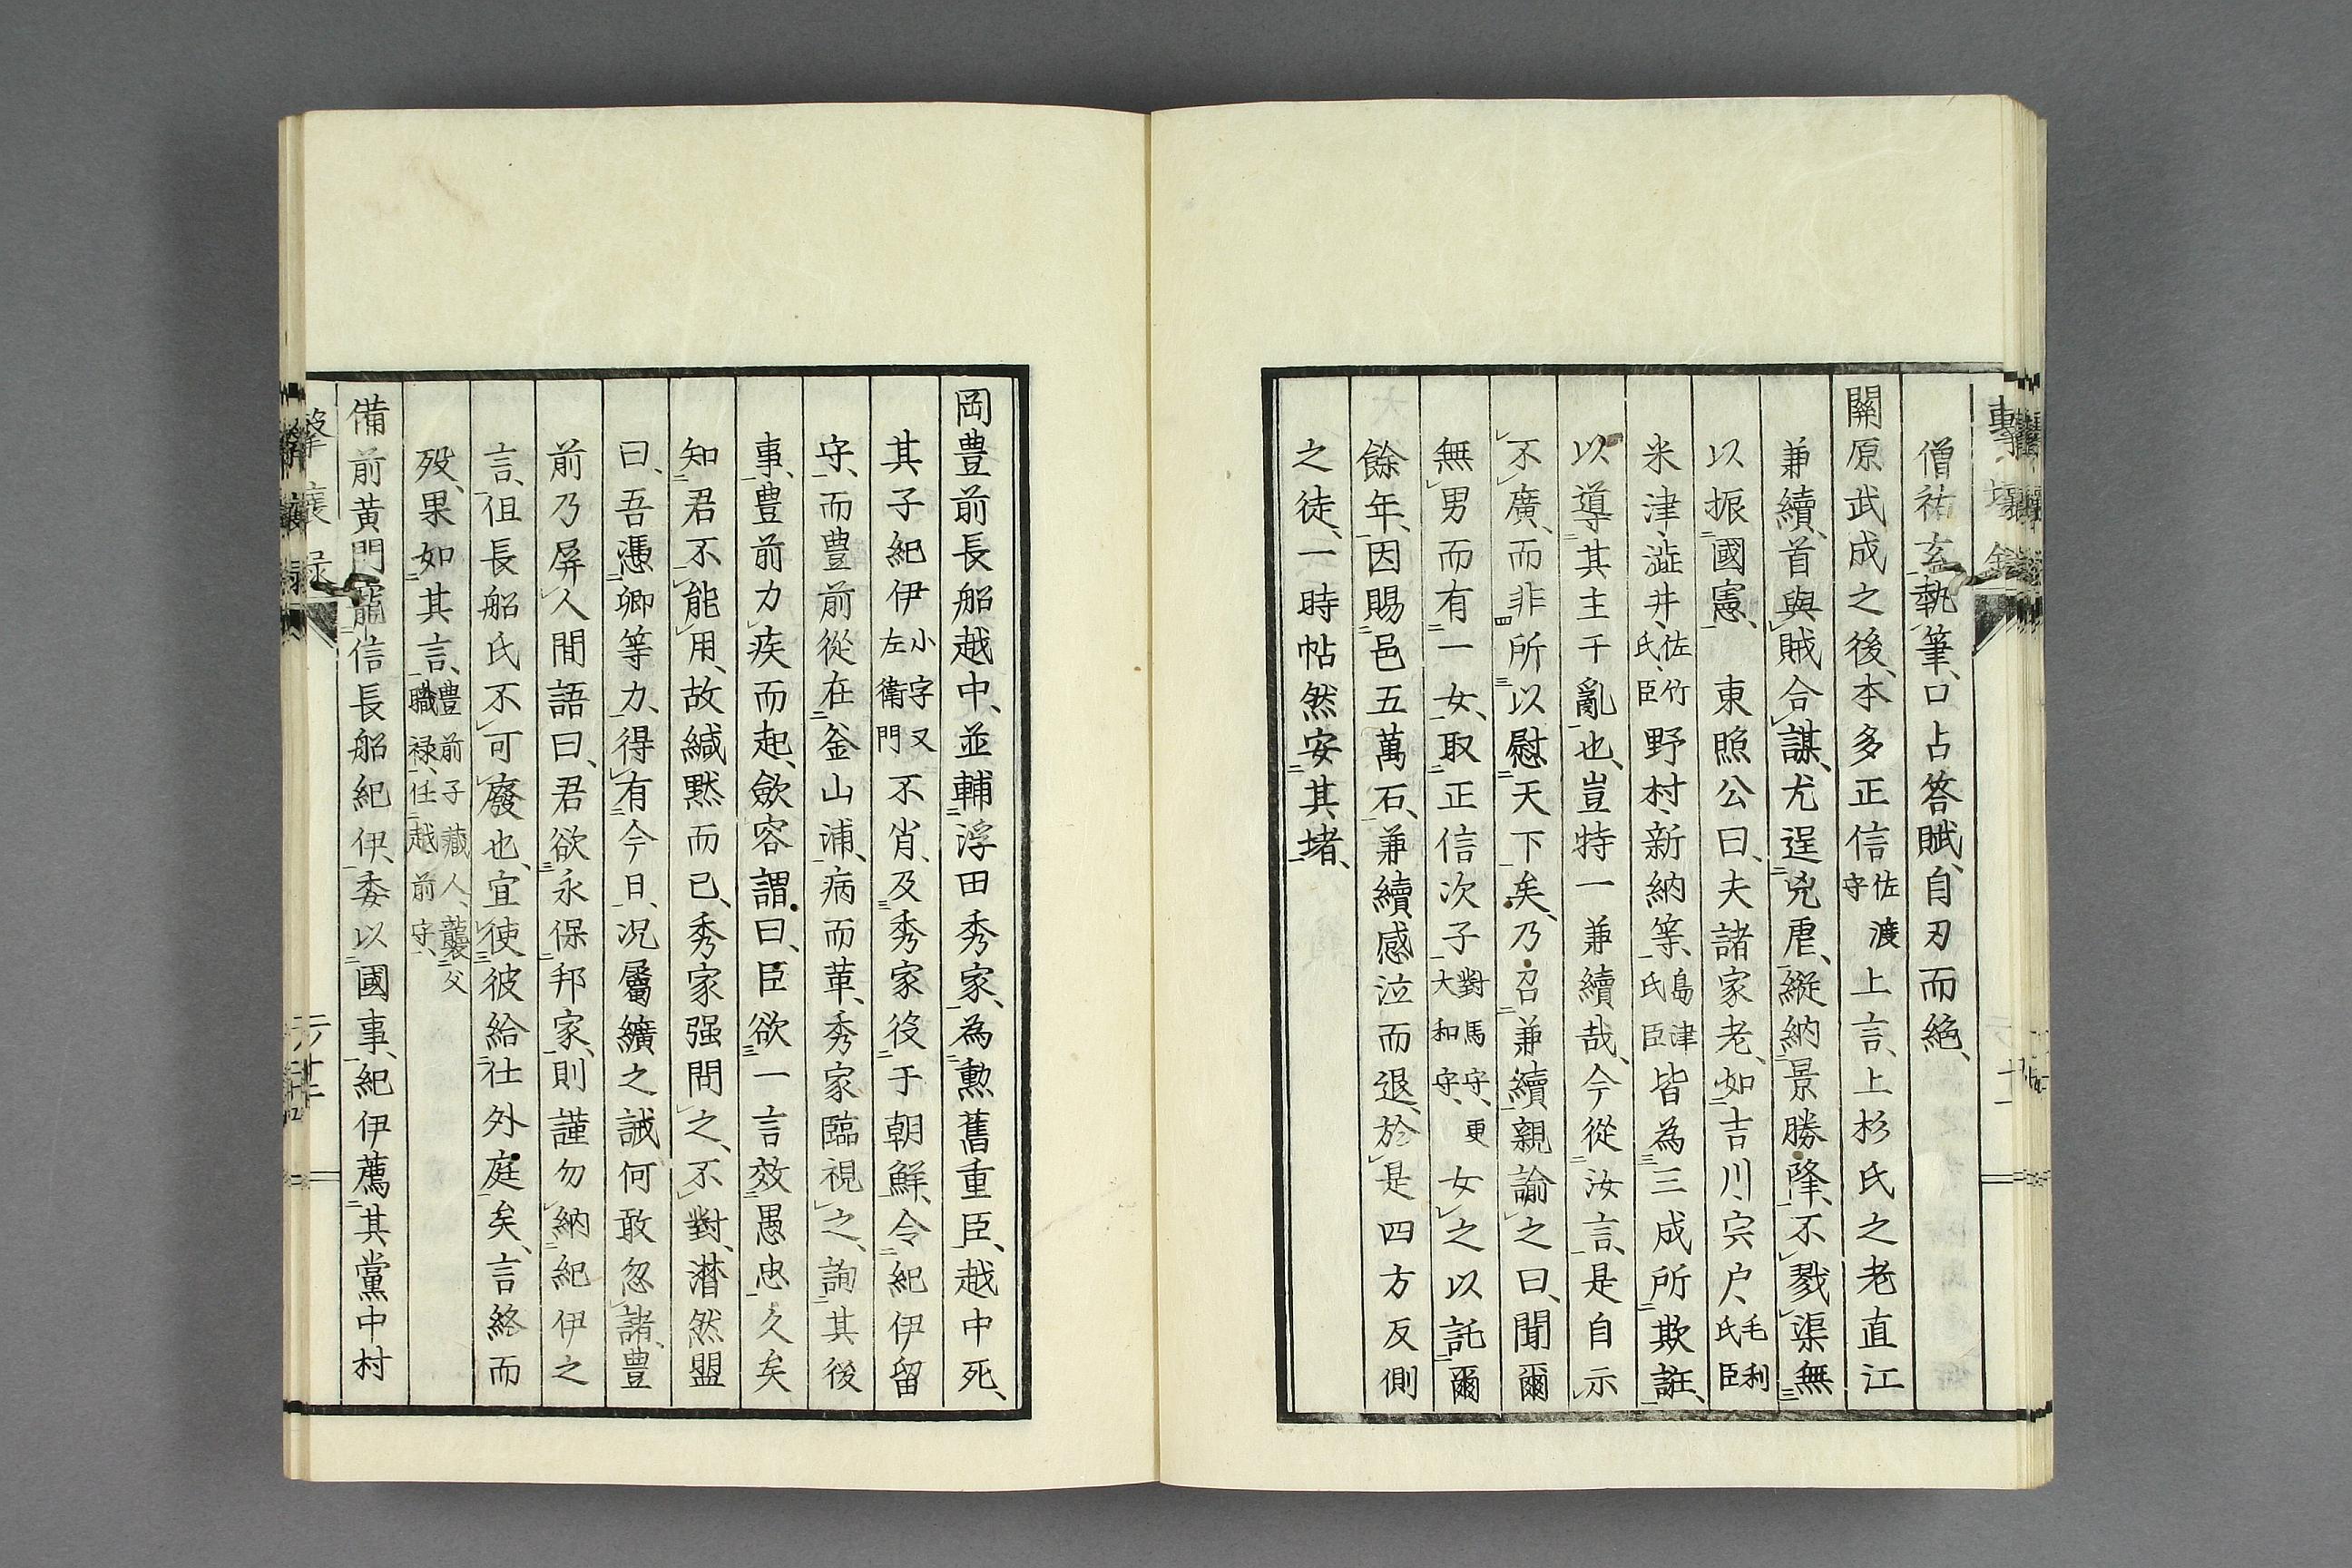 僧祐玄執筆、口占答賦、自刃而絶、
關原武成之後、本多正信佐渡守上言、上杉氏之老直江
兼續、首與賊合謀、尤逞兇虐、縱納景勝降、不戮渠無
以振國憲、 東照公曰、夫諸家老、如吉川、宍戸、毛利氏臣
米津、澁井、佐竹氏臣野村、新納等、島津氏臣皆為三成所欺誑、
以導其主于亂也、豈特一兼續哉、今從汝言、是自示
不廣、而非所以慰天下矣、乃召兼續、親諭之曰、聞爾
無男而有一女、取正信次子對馬守、更大和守、女之以託爾
餘年、因賜邑五萬石、兼續感泣而退、於是四方反側
之徒、一時帖然安其堵、
岡豊前長船越中、並輔浮田秀家、為勲舊重臣、越中死、
其子紀伊小字又左衛門不肖、及秀家役于朝鮮、令紀伊留
守、而豊前從在釜山浦、病而革、秀家臨視之、詢其後
事、豊前力疾而起、斂容謂曰、臣欲一言效愚忠久矣
知君不能用、故緘黙而已、秀家强問之、不對、潸然盟
曰、吾憑卿等力、得有今日、况屬纊之誡何敢忽諸、豊
前乃屏人間語曰、君欲永保邦家、則謹勿納紀伊之
言、伹長船氏不可廢也、宜使彼給仕外庭矣、言終而
歿、果如其言、豊前子藏人、襲父職禄、任越前守、
備前黄門寵信長船紀伊、委以國事、紀伊薦其黨中村